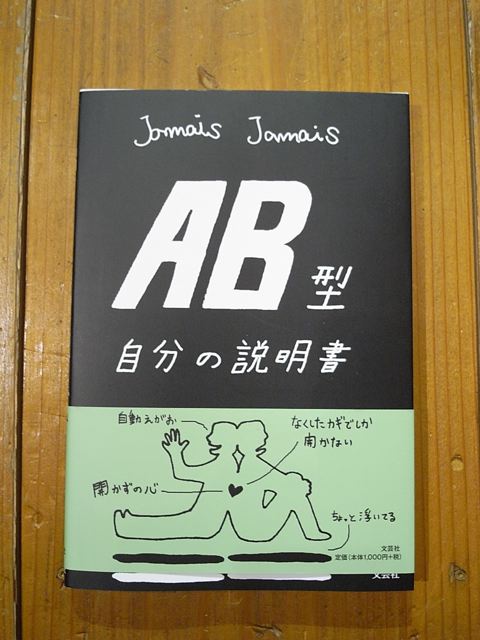 Jamais Jamais
AB型
自分の説明書
自動えがお
なくしたカギでしか
開かない
開かずの心
ちょっと浮いてる
文芸社
定価(本体1,000円+税)
文芸社